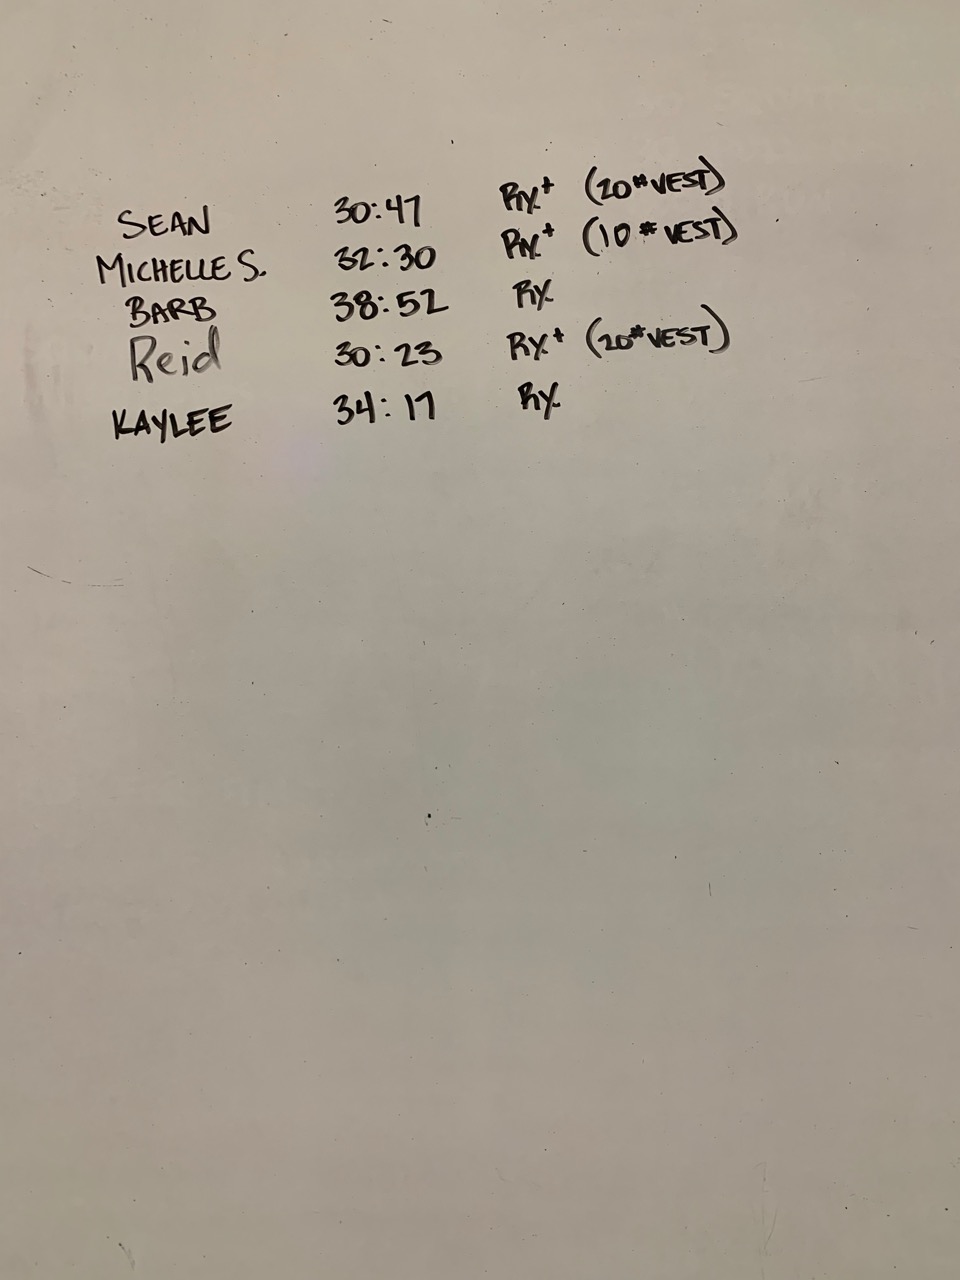 SEAN 30:47 RX+ (20# VEST)
MICHELLE S. 32:30 RX+ (10# VEST)
BARB 38:52 RX
Reid 30:23 RX+ (20# VEST)
KAYLEE 34:17 RX